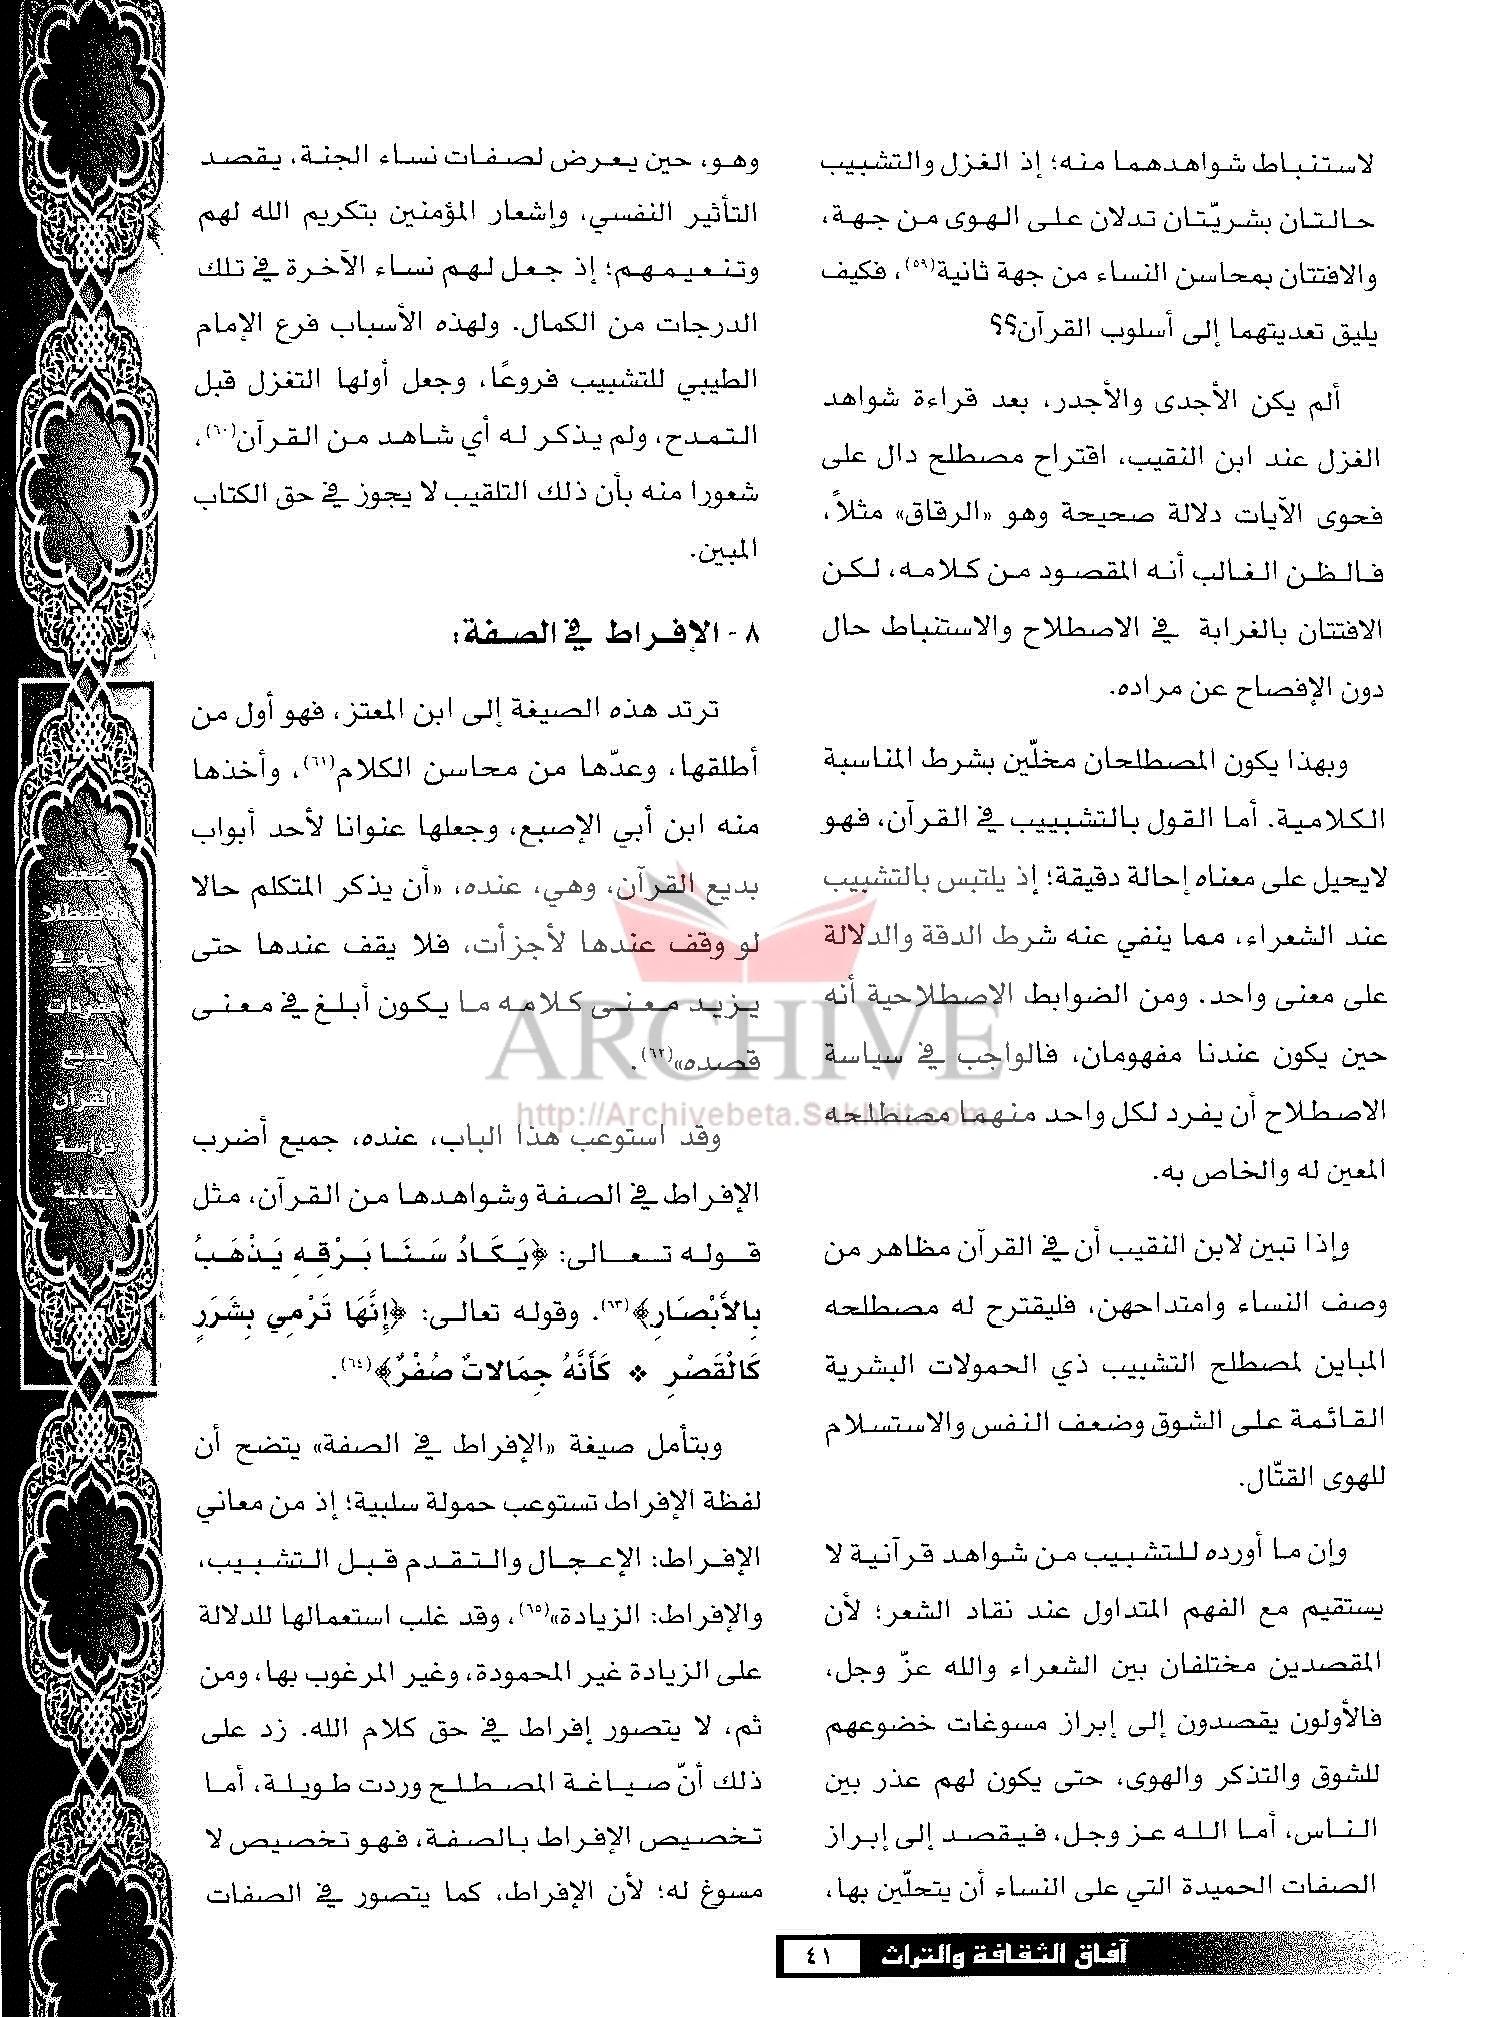 لاستنباط شواهدهما منه؛ إذ الغزل والتشبيب
حالتان بشريّتان تدلان على الهوى من جهة،
والافتتان بمحاسن النساء من جهة ثانية(٥٩)، فكيف
يليق تعديتهما إلى أسلوب القرآن؟؟
ألم يكن الأجدى والأجدر، بعد قراءة شواهد
الغزل عند ابن النقيب، اقتراح مصطلح دال على
فحوى الآيات دلالة صحيحة وهو «الرقاق» مثلاً،
فالظن الغالب أنه المقصود من كلامه، لكن
الافتتان بالغرابة في الاصطلاح والاستنباط حال
دون الإفصاح عن مراده.
وبهذا يكون المصطلحان مخلّين بشرط المناسبة
الكلامية. أما القول بالتشبييب في القرآن، فهو
لايحيل على معناه إحالة دقيقة؛ إذ يلتبس بالتشبيب
عند الشعراء، مما ينفي عنه شرط الدقة والدلالة
على معنى واحد. ومن الضوابط الاصطلاحية أنه
حين يكون عندنا مفهومان، فالواجب في سياسة
الاصطلاح أن يفرد لكل واحد منهما مصطلحه
المعين له والخاص به.
وإذا تبين لابن النقيب أن في القرآن مظاهر من
وصف النساء وامتداحهن، فليقترح له مصطلحه
المباين لمصطلح التشبيب ذي الحمولات البشرية
القائمة على الشوق وضعف النفس والاستسلام
للهوى القتّال.
وإن ما أورده للتشبيب من شواهد قرآنية لا
يستقيم مع الفهم المتداول عند نقاد الشعر؛ لأن
المقصدين مختلفان بين الشعراء والله عزّ وجل،
فالأولون يقصدون إلى إبراز مسوغات خضوعهم
للشوق والتذكر والهوى، حتى يكون لهم عذر بين
الناس، أما الله عز وجل، فيقصد إلى إبراز
الصفات الحميدة التي على النساء أن يتحلّين بها،
وهو، حين يعرض لصفات نساء الجنة، يقصد
التأثير النفسي، وإشعار المؤمنين بتكريم الله لهم
وتنعيمهم؛ إذ جعل لهم نساء الآخرة في تلك
الدرجات من الكمال. ولهذه الأسباب فرع الإمام
الطيبي للتشبيب فروعًا، وجعل أولها التغزل قبل
التمدح، ولم يذكر له أي شاهد من القرآن(٦٠)،
شعورا منه بأن ذلك التلقيب لا يجوز في حق الكتاب
المبين.
٨ - الإفراط في الصفة:
ترتد هذه الصيغة إلى ابن المعتز، فهو أول من
أطلقها، وعدّها من محاسن الكلام(٦١)، وأخذها
منه ابن أبي الإصبع، وجعلها عنوانا لأحد أبواب
بديع القرآن، وهي، عنده، «أن يذكر المتكلم حالا
لو وقف عندها لأجزأت، فلا يقف عندها حتى
يزيد معنى كلامه ما يكون أبلغ في معنى
قصده»(٦٢).
وقد استوعب هذا الباب، عنده، جميع أضرب
الإفراط في الصفة وشواهدها من القرآن، مثل
قوله تعالى: ﴿يَكَادُ سَنَا بَرْقِهِ يَذْهَبُ
بِالأَبْصَارِ﴾(٦٣). وقوله تعالى: ﴿إِنَّهَا تَرْمِي بِشَرَرٍ
كَالْقَصْرِ * كَأَنَّهُ جِمَالاتٌ صُفْرٌ﴾(٦٤).
وبتأمل صيغة «الإفراط في الصفة» يتضح أن
لفظة الإفراط تستوعب حمولة سلبية؛ إذ من معاني
الإفراط: الإعجال والتقدم قبل التشبيب،
والإفراط: الزيادة»(٦٥)، وقد غلب استعمالها للدلالة
على الزيادة غير المحمودة، وغير المرغوب بها، ومن
ثم، لا يتصور إفراط في حق كلام الله. زد على
ذلك أنّ صياغة المصطلح وردت طويلة، أما
تخصيص الإفراط بالصفة، فهو تخصيص لا
مسوغ له؛ لأن الإفراط، كما يتصور في الصفات
ARCHIVE
http://Archivebeta.Sakhrit.com
آفاق الثقافة والتراث ٤١